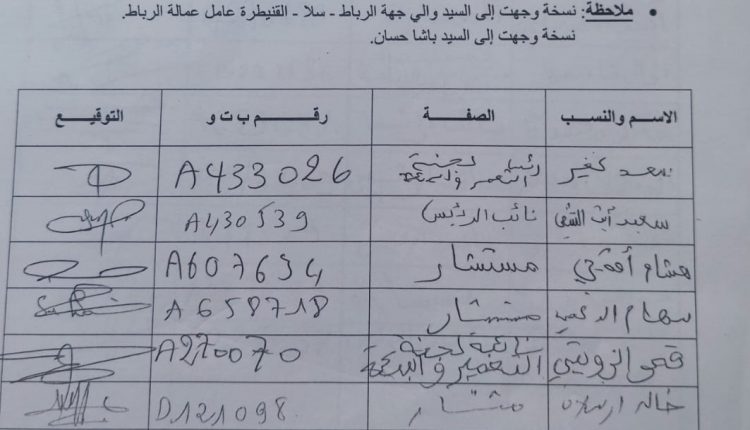 • ملاحظة: نسخة وجهت إلى السيد والي جهة الرباط - سلا - القنيطرة عامل عمالة الرباط.
نسخة وجهت إلى السيد باشا حسان.
الاسم والنسب الصفة رقم ب ت و التوقيع
سعد رئيس لجنة التعمير A433026
سعيد نائب الرئيس A430539
هشام مستشار A607634
سهام مستشار A658718
نائبة لجنة التعمير والبيئة A270070
خالد مستشار D121098